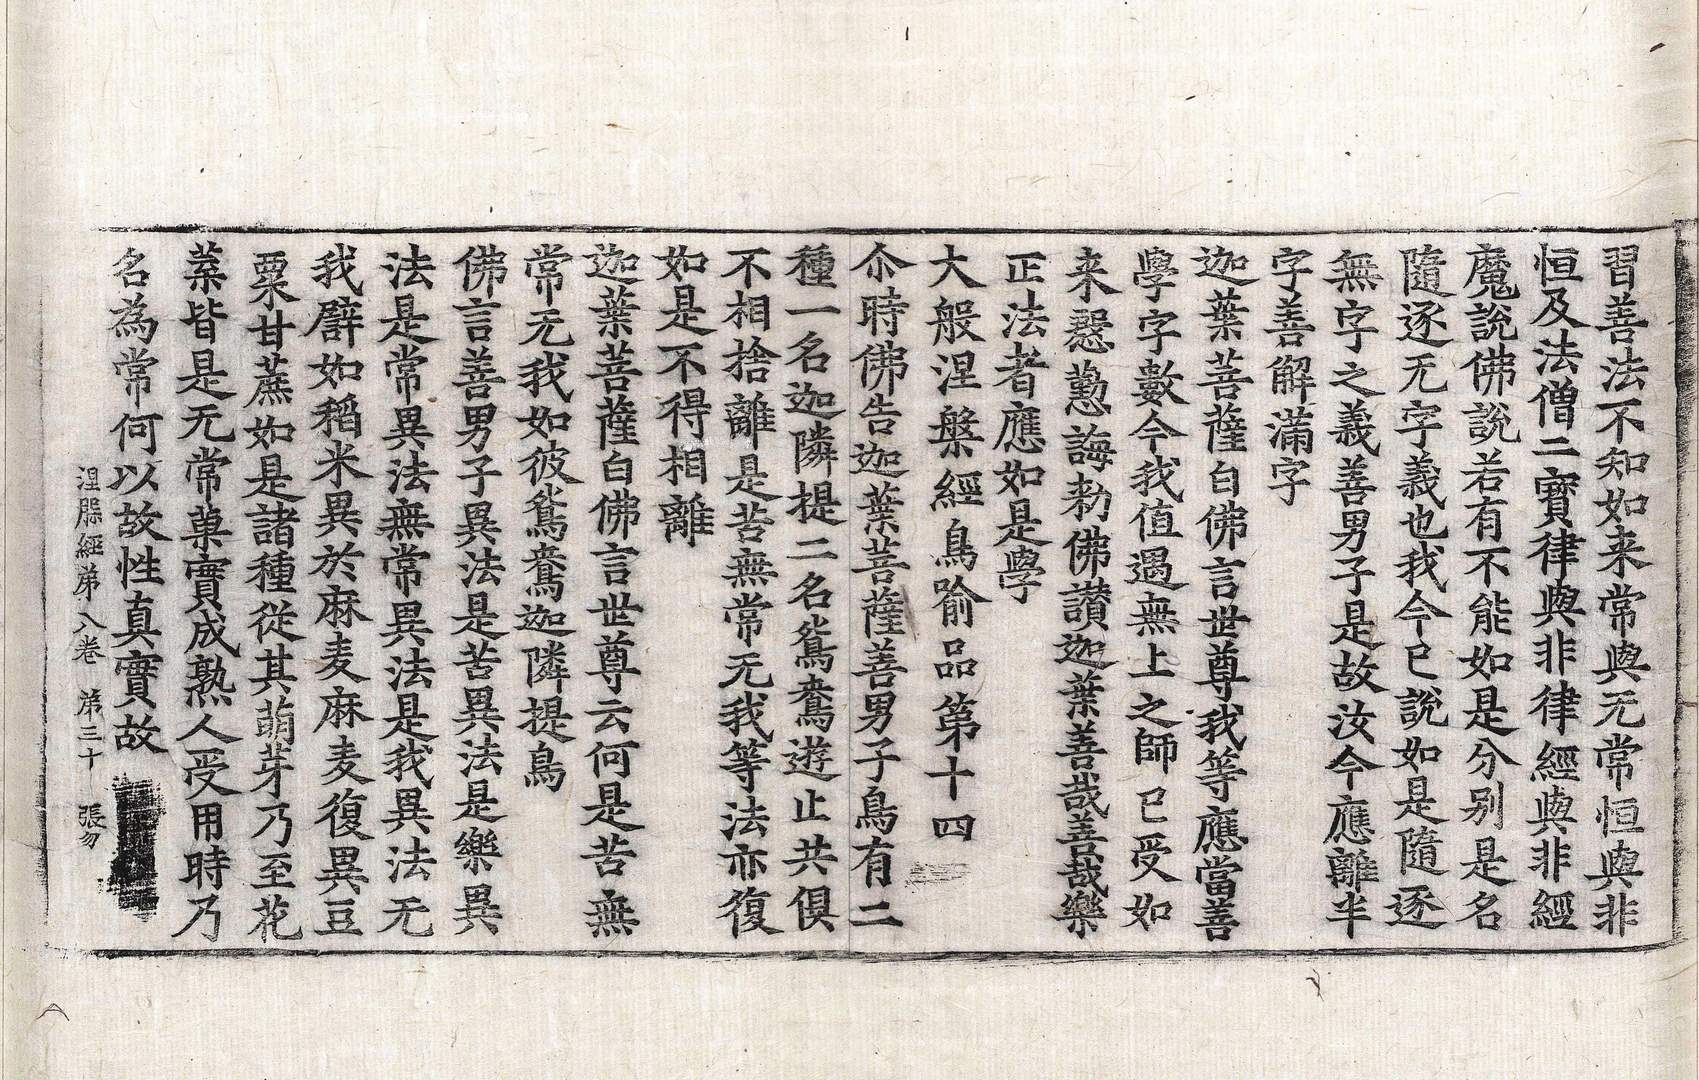 習善法不知如来常與无常恒與非
恒及法僧二寶律與非律經與非經
魔說佛說若有不能如是分别是名
隨逐无字義也我今已說如是隨逐
無字之義善男子是故汝今應離半
字善解滿字
迦葉菩薩白佛言世尊我等應當善
學字數今我值遇無上之師已受如
来慇懃誨勑佛讃迦葉善哉善哉樂
正法者應如是學
大般涅槃經鳥喻品第十四
尒時佛告迦葉菩薩善男子鳥有二
種一名迦隣提二名鴛鴦遊止共俱
不相捨離是苦無常无我等法亦復
如是不得相離
迦葉菩薩白佛言世尊云何是苦無
常无我如彼鴛鴦迦隣提鳥
佛言善男子異法是苦異法是樂異
法是常異法無常異法是我異法无
我譬如稻米異於麻麦麻麦復異豆
粟甘蔗如是諸種從其萌芽乃至花
葉皆是无常菓實成熟人受用時乃
名為常何以故性真實故
涅槃經第八卷 第三十 張勿